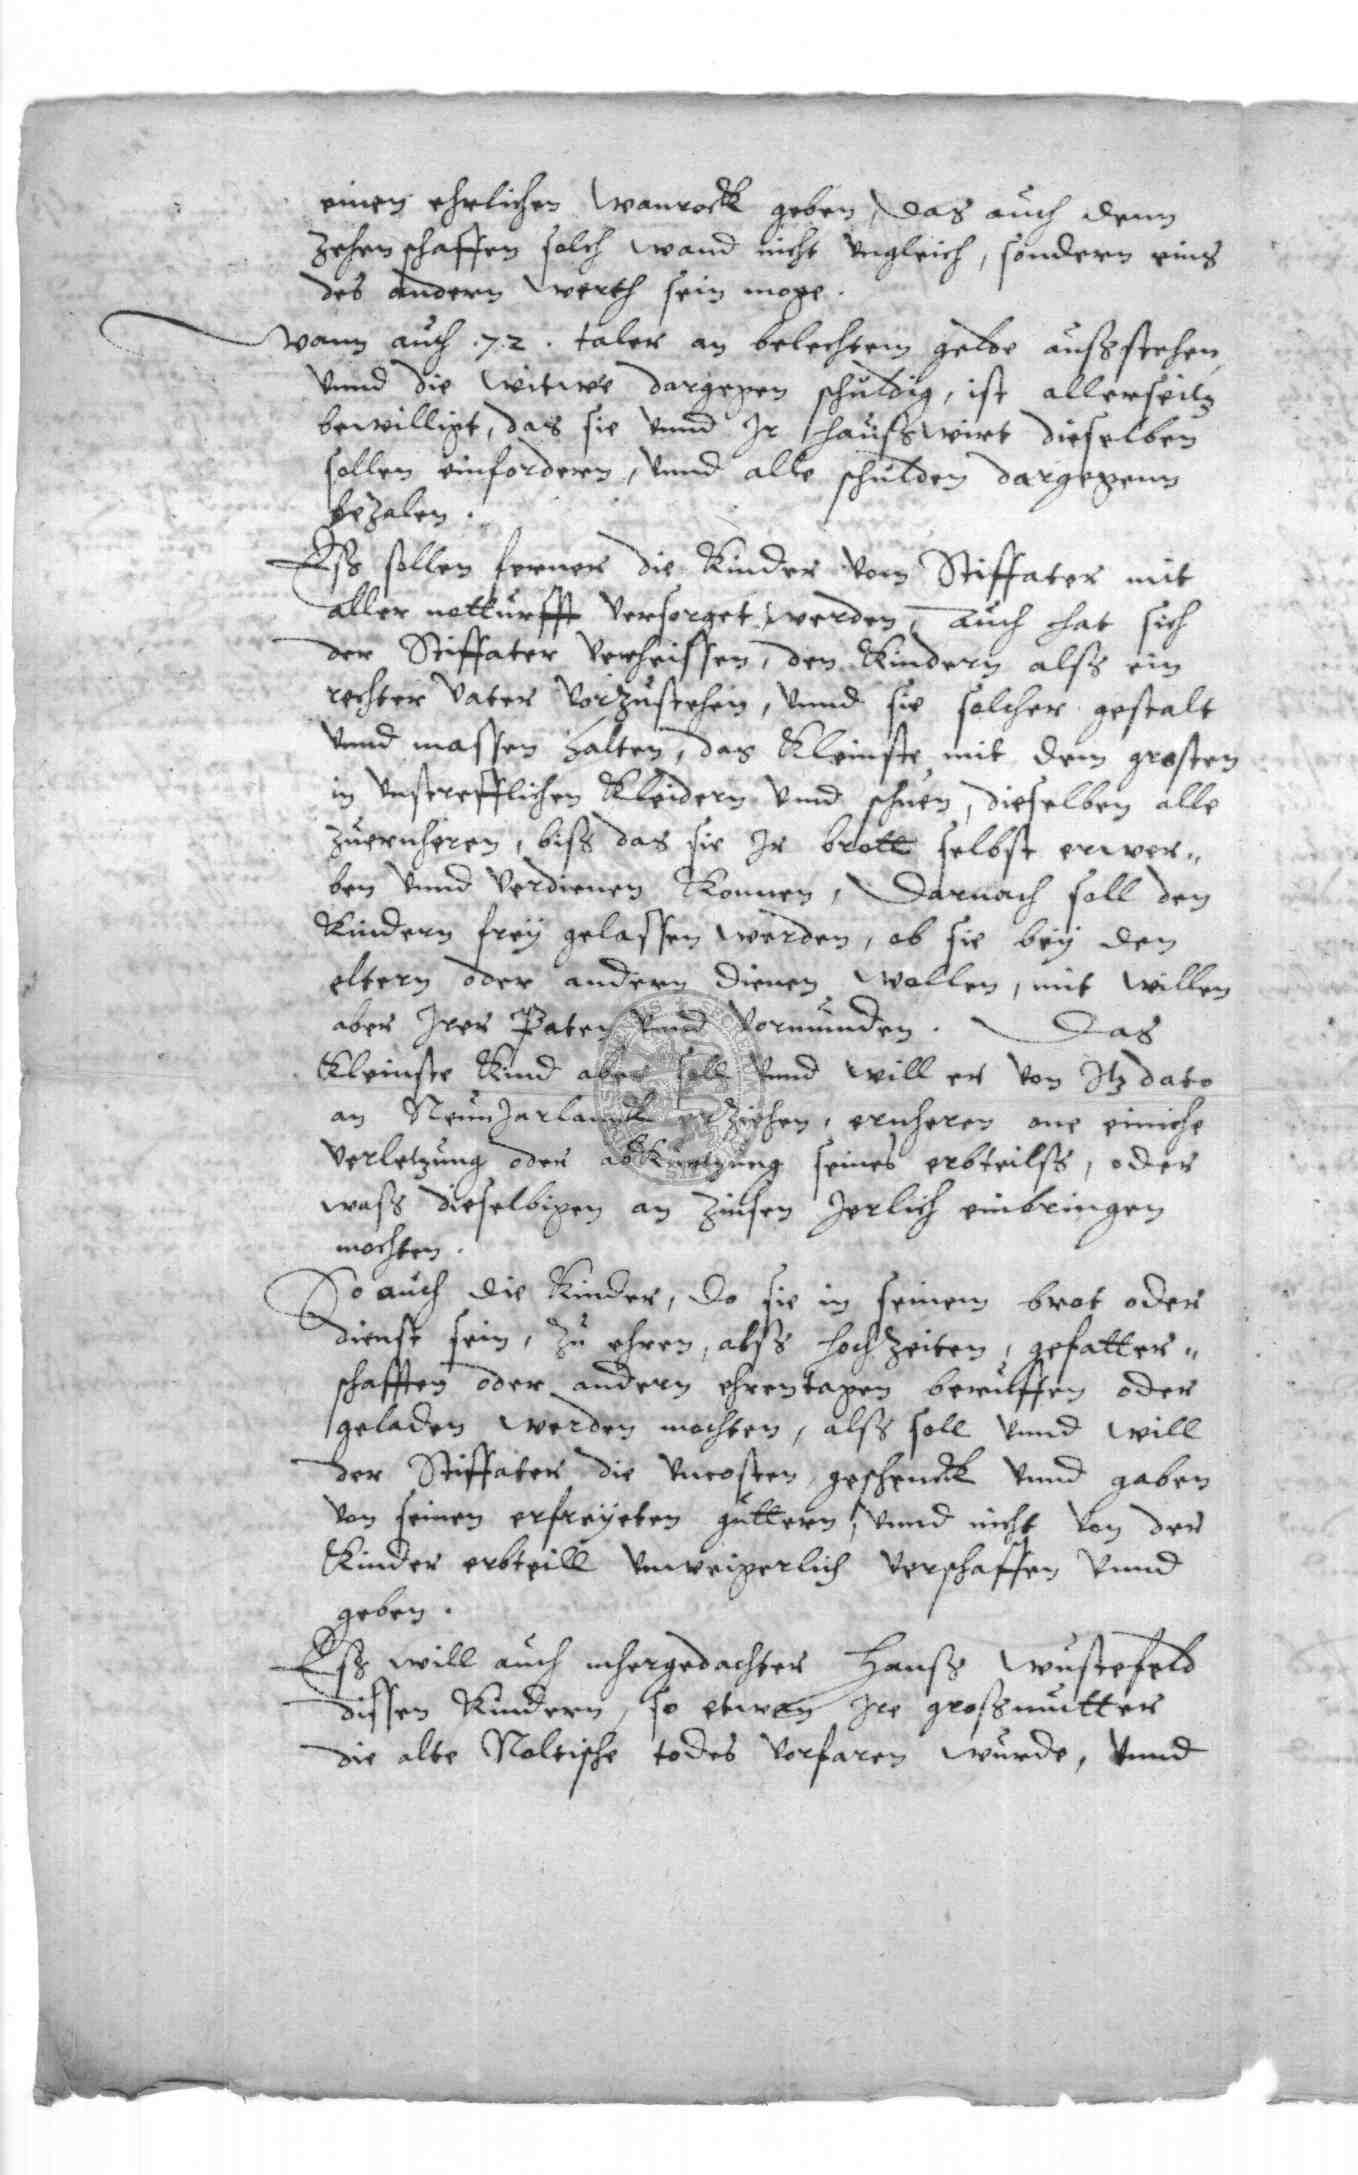 einen ehrlichen wanrock geben, das auch denn
zehen schaffen solch wand nicht ungleich, sondern eins
des andern werth sein moge.
Wann auch .72. taler an belechtem gelde aussstehen,
vnnd die witwe dargegen schuldig, ist allerseitz
bewilligt, das sie vnnd Ir hausswirt dieselben
sollen einfordern, vnnd alle schulden dargegenn
bezalen.
Ess sollen ferner die Kinder vom Stiffater mit
aller notturfft versorget werden, auch hat sich
der Stiffater verheissen, den Kindern alss ein
rechter vater vorzustehen, vnnd sie solcher gestalt
vnnd massen halten, das Kleinste mit dem grosten
in vnstrefflichen Kleidern vnnd schuen, dieselben alle
zuernheren, biss das sie Ir brott selbst erwer„
ben vnnd verdienen konnen, Darnach soll den
Kindern freÿ gelassen werden, ob sie beÿ den
eltern oder andern dienen wollen, mit willen
aber Irer Paten vnnd vormunden. Das
Kleinste Kind aber soll vnnd will er von Itz dato
an Neun Jarlanck erziehen, ernheren one einiche
verletzung oder abkurtzung seines erbteilss, oder
wass dieselbigen an zinsen Jerlich einbringen
mochten.
So auch die Kinder, do sie in seinem brot oder
dienst sein, zu ehren, alss hochzeiten, gefatter„
schafften oder andern ehrentagen beruffen oder
geladen werden mochten, alss soll vnnd will
der Stiffater die vncosten geschenck vnnd gaben
von seinen erfreÿeten guttern, vnnd nicht von der
Kinder erbteill vnweigerlich verschaffen vnnd
geben.
Ess will auch mhergedachter Hanss Wustefeld
dissen Kindern, so etwan Ire grossmutter
die alte Noltische todes vorfaren wurde, vnnd